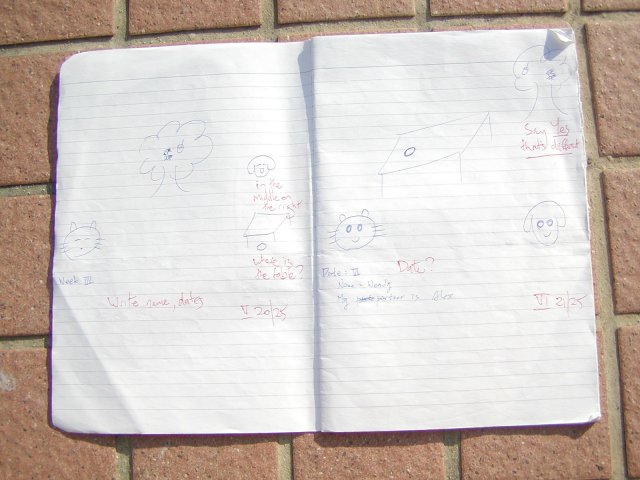 in the
middle on
the right
where is
the table?
Week III
Write name, dates
V 20/25
Say Yes
that's different
Date: III
Date?
Name = Wendy
My partner is Alex
VI 21/25